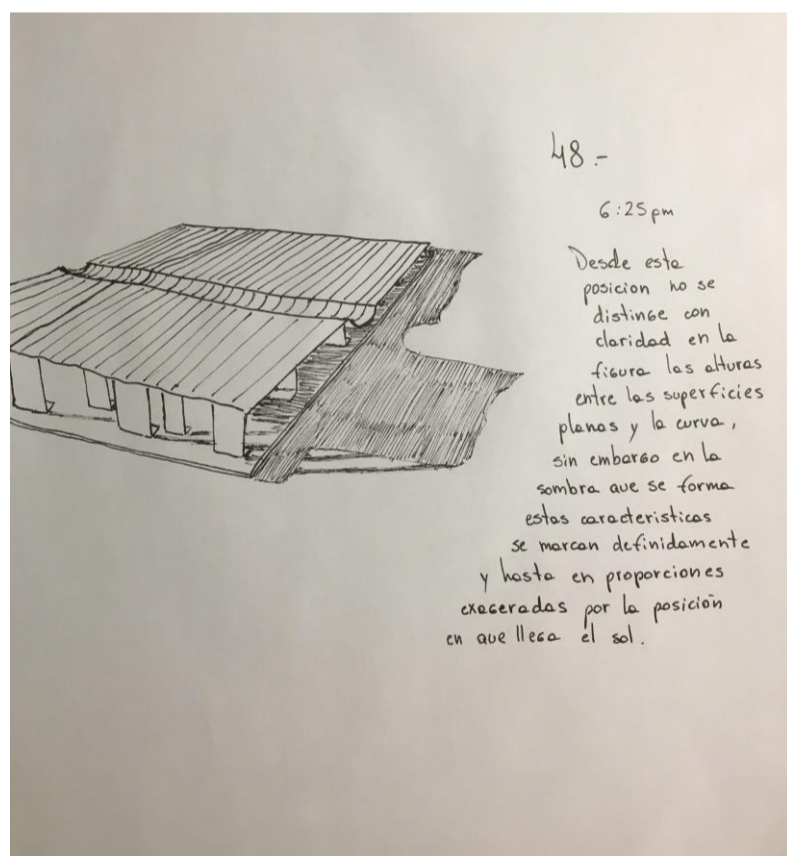 48.-
6:25pm
Desde esta
posicion no se
distinge con
claridad en la
figura las alturas
entre las superficies
planas y la curva,
sin embargo en la
sombra que se forma
estas caracteristicas
se marcan definidamente
y hasta en proporciones
exageradas por la posición
en que llega el sol.